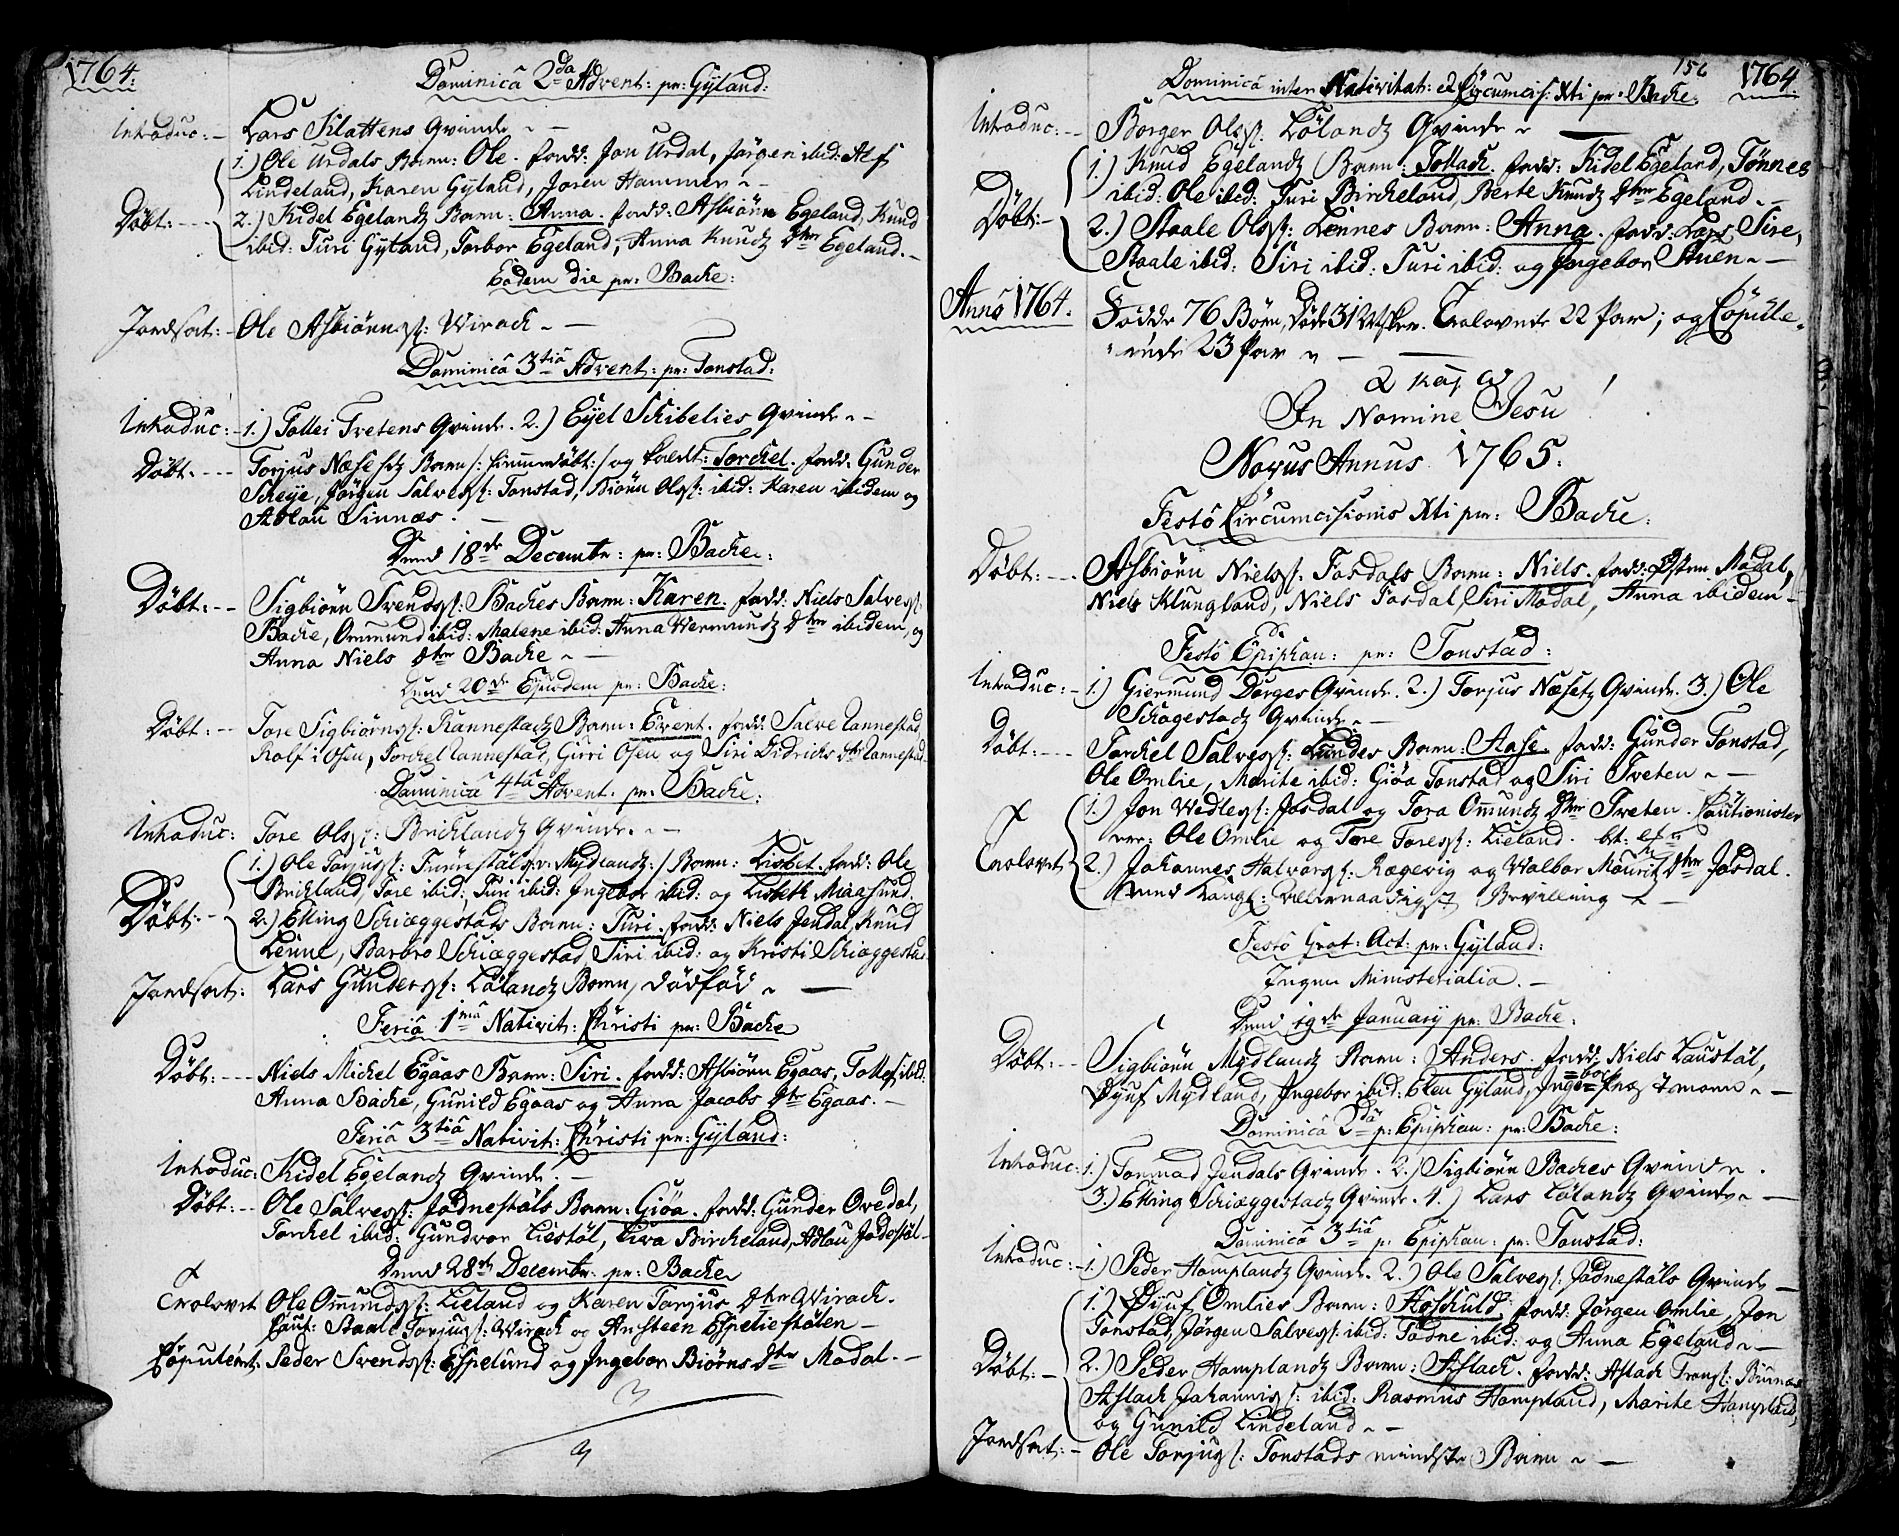 1764.
Dominicâ 2da Advent: pr: Gyland:
Introduc: - Lars Klattens Qvinde
1.) Ole Urdals Barn: Ole. fadd: Jon Urdal, Jørgen ibid: Alf
Lindeland, Karen Gyland, Joren Hammer
Døbt: - 2.) Kidel Egelandz Barn: Anna. fadd: Asbiørn Egeland, Knud
ibid: Turi Gyland, Torbor Egeland, Anna Knudz Dtter Egeland.
Eodem die pr: Backe:
Jordsat: - Ole Asbiørns: Wirack.
Dominicâ 3tiâ Advent: pr: Tonstad:
Introduc: - 1.) Tollei Tvetens Qvinde. 2.) Eyel Schibelies Qvinde
Døbt. - Torjus Næsetz Barn /: hiemmedøbt :/ og kaldt: Torckel. fadd: Gunder
Scheye, Jørgen Salves: Tonstad, Biørn Ols: ibid: Karen ibidem og
Adlau Sinnæs.
Dend 18de Decembr: pr: Backe:
Døbt: - Sigbiørn Svends: Backes Barn: Karen. fadd: Niels Salves:
Backe, Ommund ibid: Malene ibid: Anna Wermundz Dtter ibidem, og
Anna Niels Dtter Backe
Dend 20de Ejusdem pr: Backe:
Døbt: - Tore Sigbiørns: Rannestadz Barn: Event. fadd: Salve Rannestad,
Rolf i Osen, Torckel Rannestad, Girri Osen og Siri Didrichs Dtr Rannestad
Dominicâ 4tâ Advent. pr: Backe:
Introduc: Tore Ols: Bricklandz Qvinde.
1.) Ole Torjus: Mydlandz :/ Barn: Lisbet. fadd: Ole
Brickland, Tore ibid: Turi ibid: Ingebor ibid: og Lisbeth Maasund.
Døbt: - 2.) Elling Schiæggestads Barn: Turi. fadd: Niels Jendal, Knud
Lenne, Barbro Schiæggestad, Siri ibid: og Kristi Schiæggestad
Jordsat: Lars Gunders: Lølandz Barn, dødfød
Feriâ 1mâ Nativit: Christi pr: Backe
Døbt: - Niels Michel Egaas Barn: Siri. fadd: Asbiørn Egaas, Tollef ibid.
Anna Backe, Gunild Egaas og Anna Jacobs Dtr Egaas.
Feriâ 3tiâ Nativit: Christi pr: Gyland:
Introduc: Kidel Egelandz Qvinde.
Døbt: - Ole Salves: Jødnestøls Barn: Giøa. fadd: Gunder Ovedal,
Torckel ibid: Gundvor Liestøl, Liva Birckeland, Adlau Jødestøl
Dend 28de Decembr. pr: Backe
Trolovet Ole Ommunds: Lieland og Karen Torjus Dtter Wirack.
Caut: Baal Torjus: Wirack og Ansteen Espeliestølen
Copuleret. Peder Svends: Espelund og Ingebor Biørns Dtr Modal.
156
1764
Dominicâ inter Nativitat: et Circumcis: Xti pr: Backe.
Introduc: - Børger Ols: Lølandz Qvinde
1.) Knud Egelandz Barn: Tollack. fadd: Kidel Egeland, Tønnes
ibid: Ole ibid: Turi Birckeland, Berte Knudz Dtter Egeland.
Døbt: 2.) Staale Ols: Lennes Barn: Anna. fadd: Lars Sire,
Staale ibid: Siri ibid: Turi ibid: og Ingebor Stuen
Anno 1764. Fødde 76 Børn, Døde 31 Msker. Trolovede 22 Par; og Copule-
rede 23 Par
In Nomine Jesu
Novus Annus 1765.
Festo Circumcisionis Xti pr: Backe:
Døbt: - Asbiørn Niels: Fosdals Barn: Niels. fadd: Østen Modal,
Niels Klungland, Niels Fosdal, Siri Modal, Anna ibidem
Festo Epiphan: pr: Tonstad:
Introduc: - 1.) Giermund Dorges Qvinde. 2.) Torjus Næsetz Qvinde. 3.) Ole
Schogestadz Qvinde
Døbt: - Torckel Salves: Lindes Barn: Aase. fadd: Gunder Tonstad,
Ole Omlie, Marite ibid: Giøa Tonstad og Siri Tveten
1.) Jon Wedles: Josdal og Tora Omundz Dtter Tveten. Cautionister
: Ole Omlie og Tore Tores: Lieland.
Trolovet 2.) Johannes Halvors: Regevig og Walbor Mouritz Dtter Josdal.
Med Kongl: allernaadigst Bevilling
Festo Grat: Act: pr: Gyland:
Ingen Ministerialia.
Dend 19de January pr: Backe.
Døbt: - Sigbiørn Mydlandz Barn: Anders. fadd: Niels Laustøl,
Siuf Mydland, Ingebor ibid: Elen Gyland, Ingebor
Dominicâ 2dâ p: Epiphan: pr: Backe:
Introduc: 1.) Tormod Jendals Qvinde. 2.) Sigbiørn Backes Qvinde.
3.) Elling Schiæggestadz Qvinde. 4.) Lars Lølandz Qvinde
Dominicâ 3tiâ p: Epiphan: pr: Tonstad:
Introduc: - 1.) Peder Hamplandz Qvinde. 2.) Ole Salves: Jødnestøls Qvinde
1.) Siuf Omlies Barn: Asschuld. fadd: Jørgen Omlie, Jon
Tonstad, Jørgen Salves: ibid: Tødne ibid: og Anna Egeland
Døbt: - 2.) Peder Hamplandz Barn: Aslack. fadd: Aslack Trons:
Aslack Johannis: ibid: Rasmus Hampland, Marite Hampland,
og Gunild Lindeland
Jordsat: - Ole Torjus: Tonstads mindste Barn